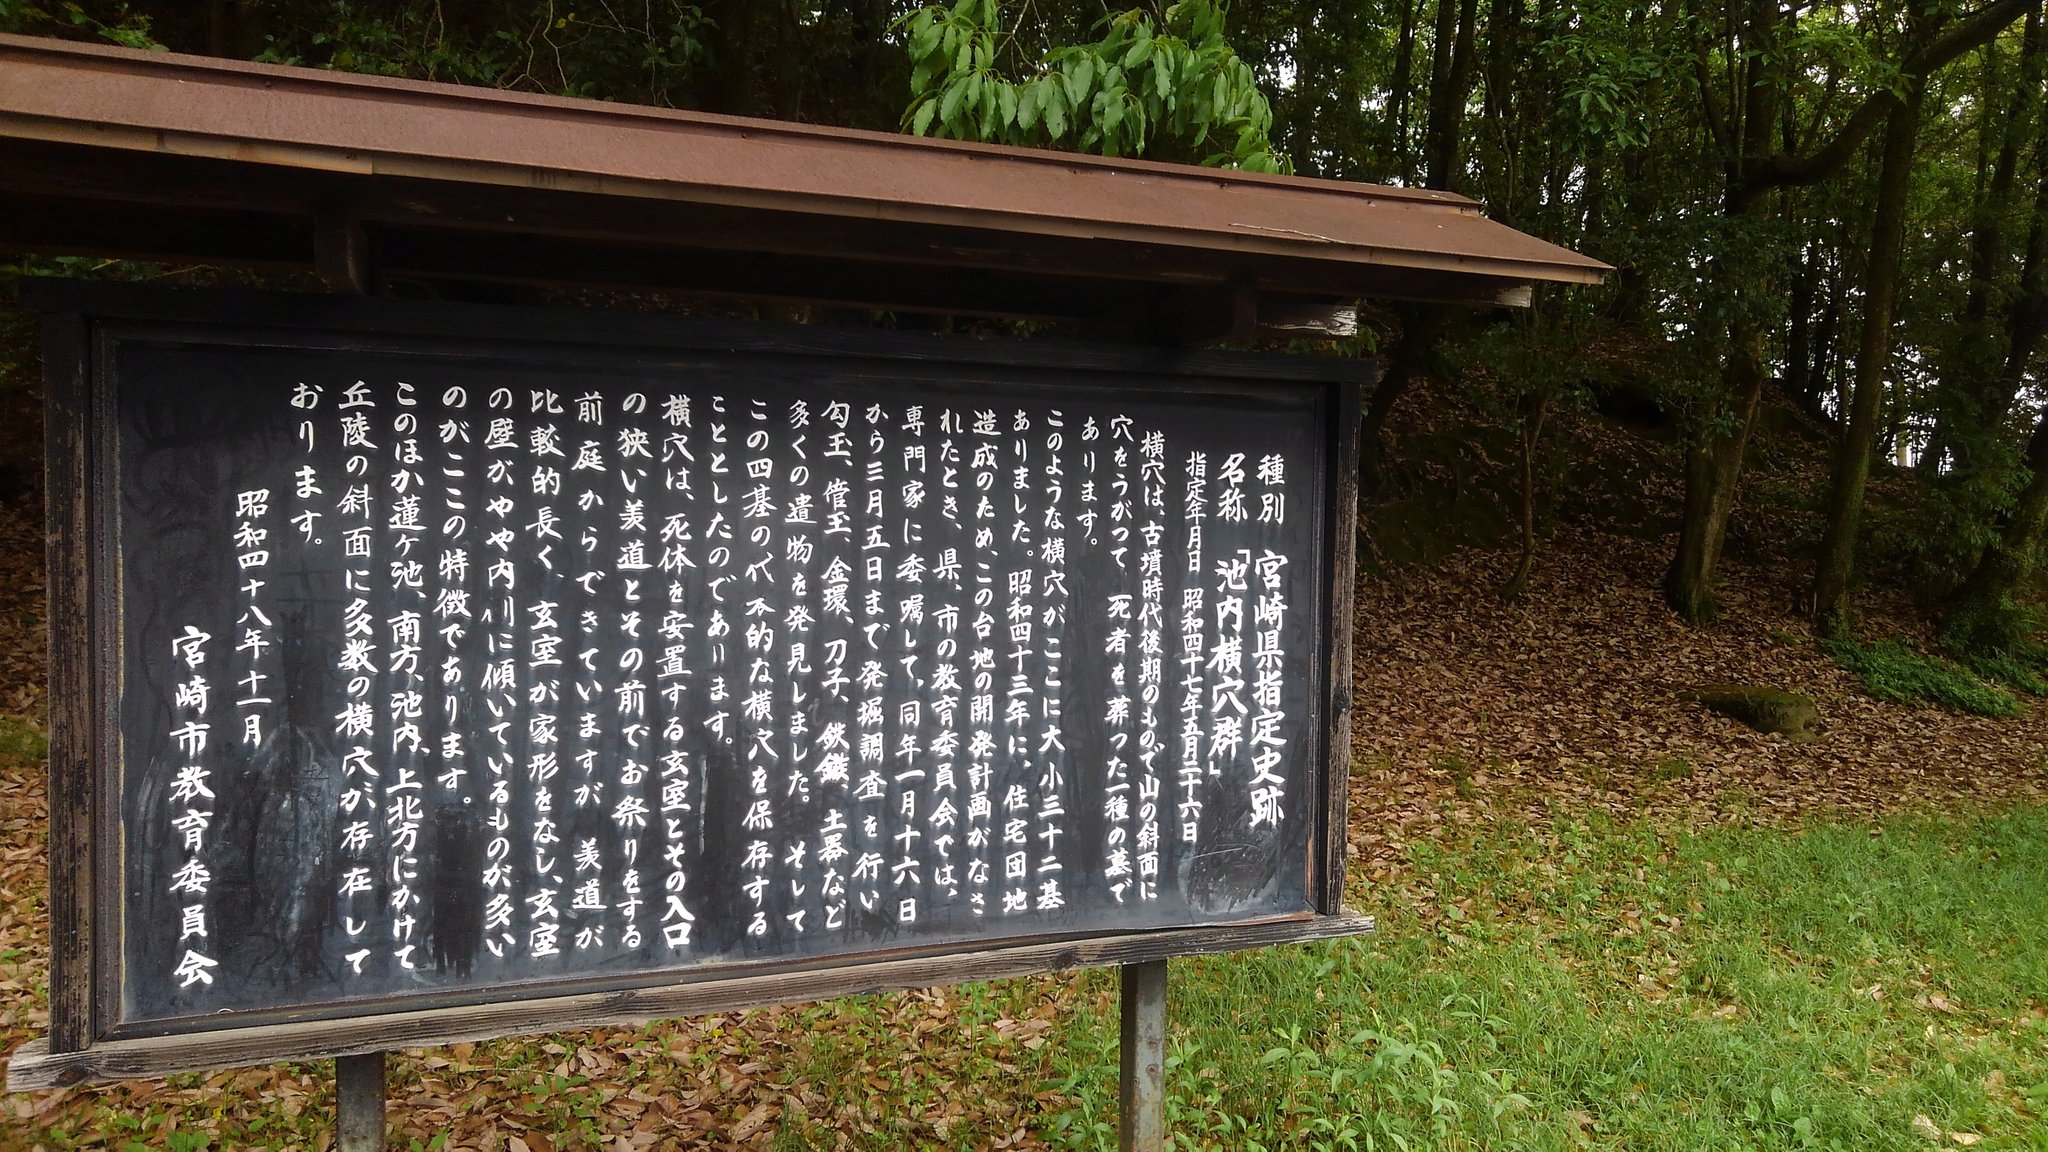 種別 宮崎県指定史跡
名称 「池内横穴群」
指定年月日 昭和四十七年五月二十六日
横穴は、古墳時代後期のもので山の斜面に
穴をうがって、死者を葬った一種の墓で
あります。
このような横穴がここに大小三十二基
ありました。昭和四十三年に、住宅団地
造成のため、この台地の開発計画がなさ
れたとき、県、市の教育委員会では、
専門家に委嘱して、同年一月十六日
から三月五日まで発掘調査を行い
勾玉、管玉、金環、刀子、鉄鏃、土器など
多くの遺物を発見しました。そして
この四基の代表的な横穴を保存する
こととしたのであります。
横穴は、死体を安置する玄室とその入口
の狭い羨道とその前でお祭りをする
前庭からできていますが 羨道が
比較的長く、玄室が家形をなし、玄室
の壁がやや内側に傾いているものが多い
のがここの特徴であります。
このほか蓮ヶ池、南方、池内、上北方にかけて
丘陵の斜面に多数の横穴が存在して
おります。
昭和四十八年十一月
宮崎市教育委員会